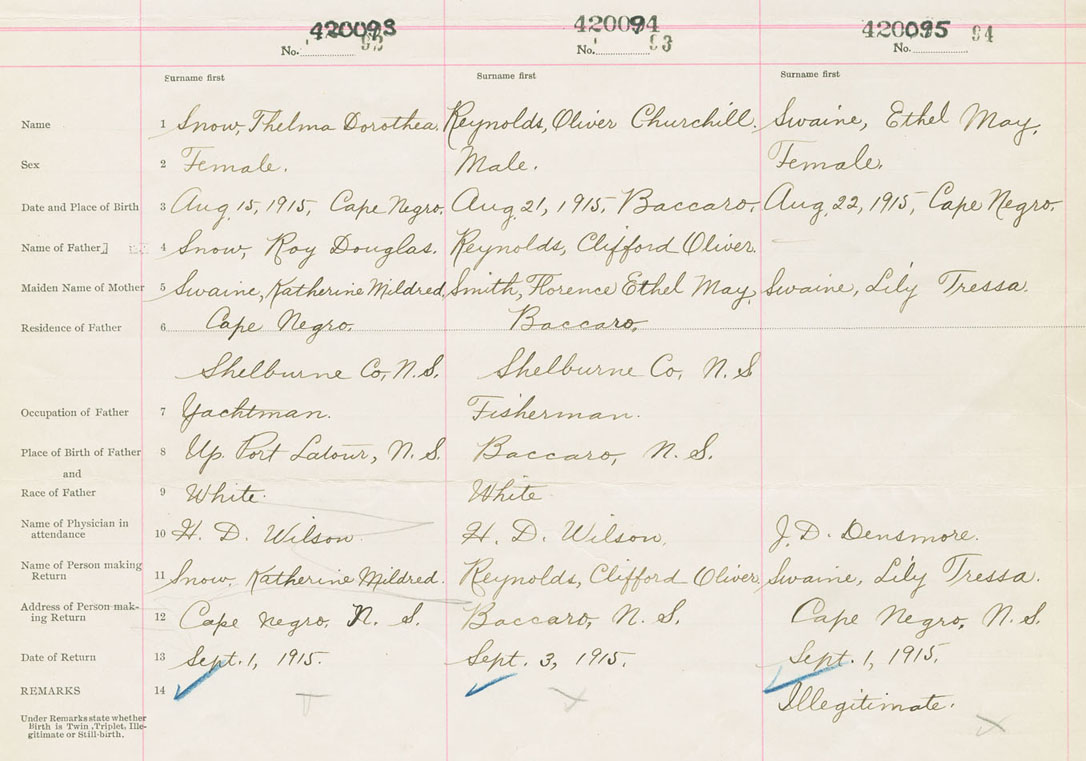 420093 420094 420095
No. 92 No. 93 No. 94
Surname first Surname first Surname first
Name 1 Snow, Thelma Dorothea. Reynolds, Oliver Churchill. Swaine, Ethel May.
Sex 2 Female. Male. Female.
Date and Place of Birth 3 Aug. 15, 1915, Cape Negro. Aug. 21, 1915, Baccaro. Aug. 22, 1915, Cape Negro.
Name of Father 4 Snow, Roy Douglas. Reynolds, Clifford Oliver.
Maiden Name of Mother 5 Swaine, Katherine Mildred. Smith, Florence Ethel May. Swaine, Lily Tressa.
Residence of Father 6 Cape Negro. Baccaro.
Shelburne Co, N.S. Shelburne Co, N.S
Occupation of Father 7 Yachtman. Fisherman.
Place of Birth of Father 8 Up. Port Latour, N.S. Baccaro, N.S.
and
Race of Father 9 White. White
Name of Physician in
attendance 10 H. D. Wilson. H. D. Wilson. J. D. Densmore.
Name of Person making
Return 11 Snow, Katherine Mildred. Reynolds, Clifford Oliver. Swaine, Lily Tressa.
Address of Person mak-
ing Return 12 Cape Negro, N. S. Baccaro, N. S. Cape Negro, N.S.
Date of Return 13 Sept. 1, 1915. Sept. 3, 1915. Sept. 1, 1915.
REMARKS 14 Illegitimate.
Under Remarks state whether
Birth is Twin, Triplet, Ille-
gitimate or Still-birth.